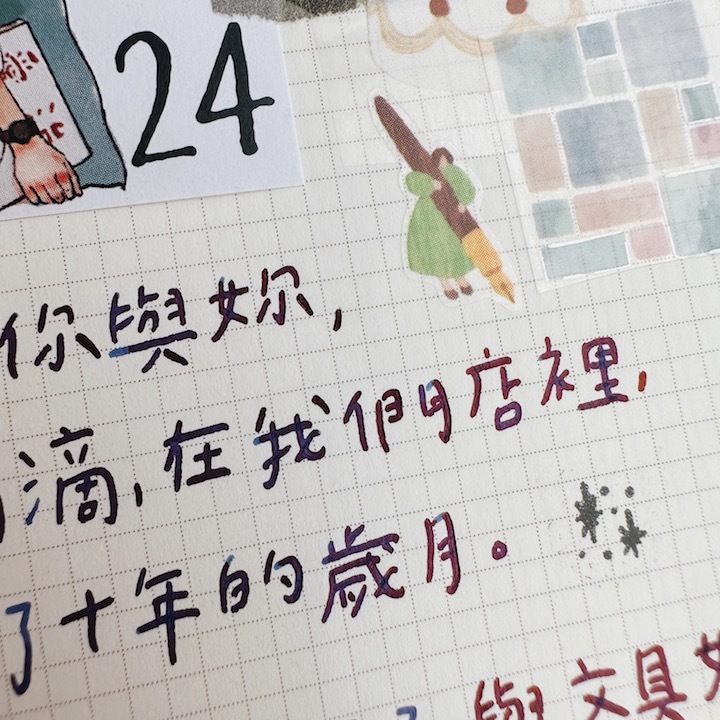 24
你與妳,
滴,在我們店裡,
了十年的歲月。
與文具